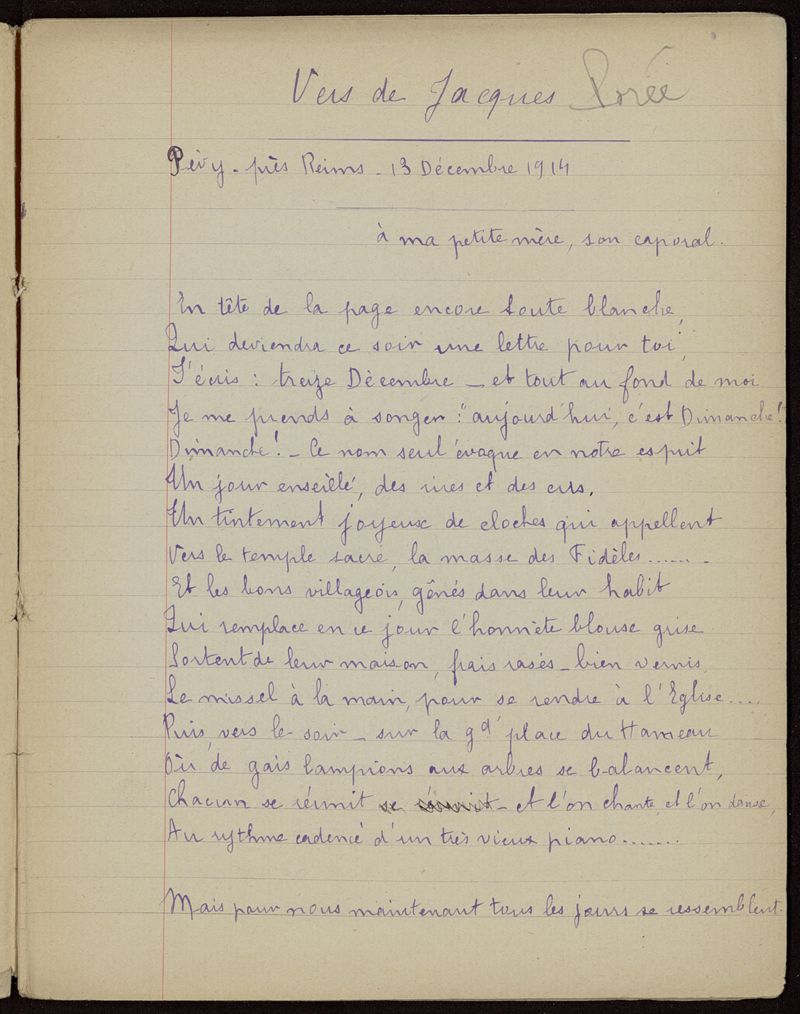 Vers de Jacques Porée
Pévy - près Reims - 13 Décembre 1914
à ma petite mère, son caporal.
En tête de la page encore toute blanche,
Qui deviendra ce soir une lettre pour toi,
J'écris : treize Décembre - et tout au fond de moi
Je me prends à songer : "aujourd'hui, c'est Dimanche!"
Dimanche! - Ce nom seul évoque en notre esprit
Un jour enseillé, des rires et des cris,
Un tintement joyeux de cloches qui appellent
Vers le temple sacré, la masse des Fidèles.......
Et les bons villageois, gênés dans leur habit
Qui remplace en ce jour l'honnête blouse grise
Sortent de leur maison, frais rasés - bien vernis,
Le missel à la main, pour se rendre à l'Eglise....
Puis, vers le soir - sur la gd' place du Hameau
Où de gais lampions aux arbres se balancent,
Chacun se réunit se réunit - et l'on chante, et l'on danse,
Au rythme cadencé d'un très vieux piano.......
Mais pour nous maintenant tous les jours se ressemblent.